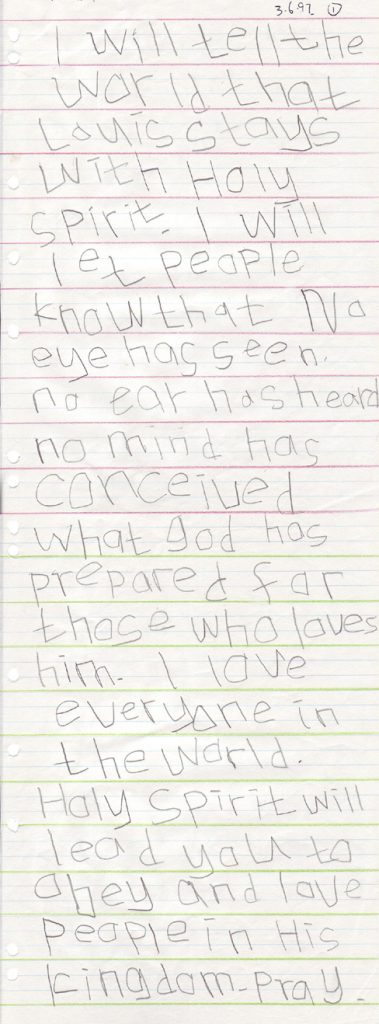 3.6.97 ①
I will tell the
world that
Louis stays
with Holy
Spirit. I will
let people
know that No
eye has seen.
no ear has heard
no mind has
conceived
what god has
prepared for
those who loves
him. I love
everyone in
the world.
Holy Spirit will
lead you to
obey and love
people in His
kingdom-Pray.